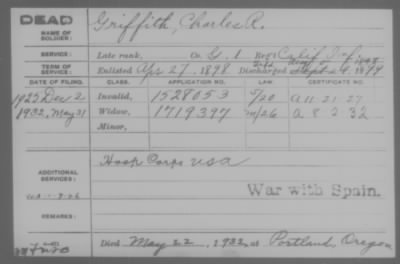 DEAD
NAME OF SOLDIER: Griffith, Charles R.
SERVICE: Late rank, Co. G, 1 Reg't Calif Inf
TERM OF SERVICE: Enlisted Apr 27, 1898 Discharged Sept 29, 1899
DATE OF FILING. CLASS. APPLICATION NO. LAW. CERTIFICATE NO.
1925 Dec 2 Invalid, 1528053 A 11-21-27
1932, May 31 Widow, 1719397 A 8-2-32
Minor,
ADDITIONAL SERVICES: Hosp Corps USA
War with Spain.
REMARKS:
Died May 22, 1932, at Portland, Oregon